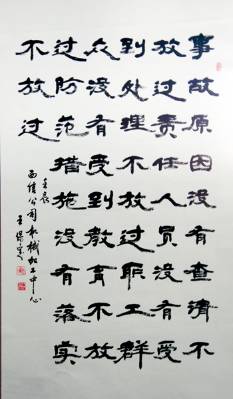 事故原因没有查清不
放过责任人员没有受
到处理不放过职工群
众没有受到教育不放
过防范措施没有落实
不放过
壬辰
公司机械加工中心
王保